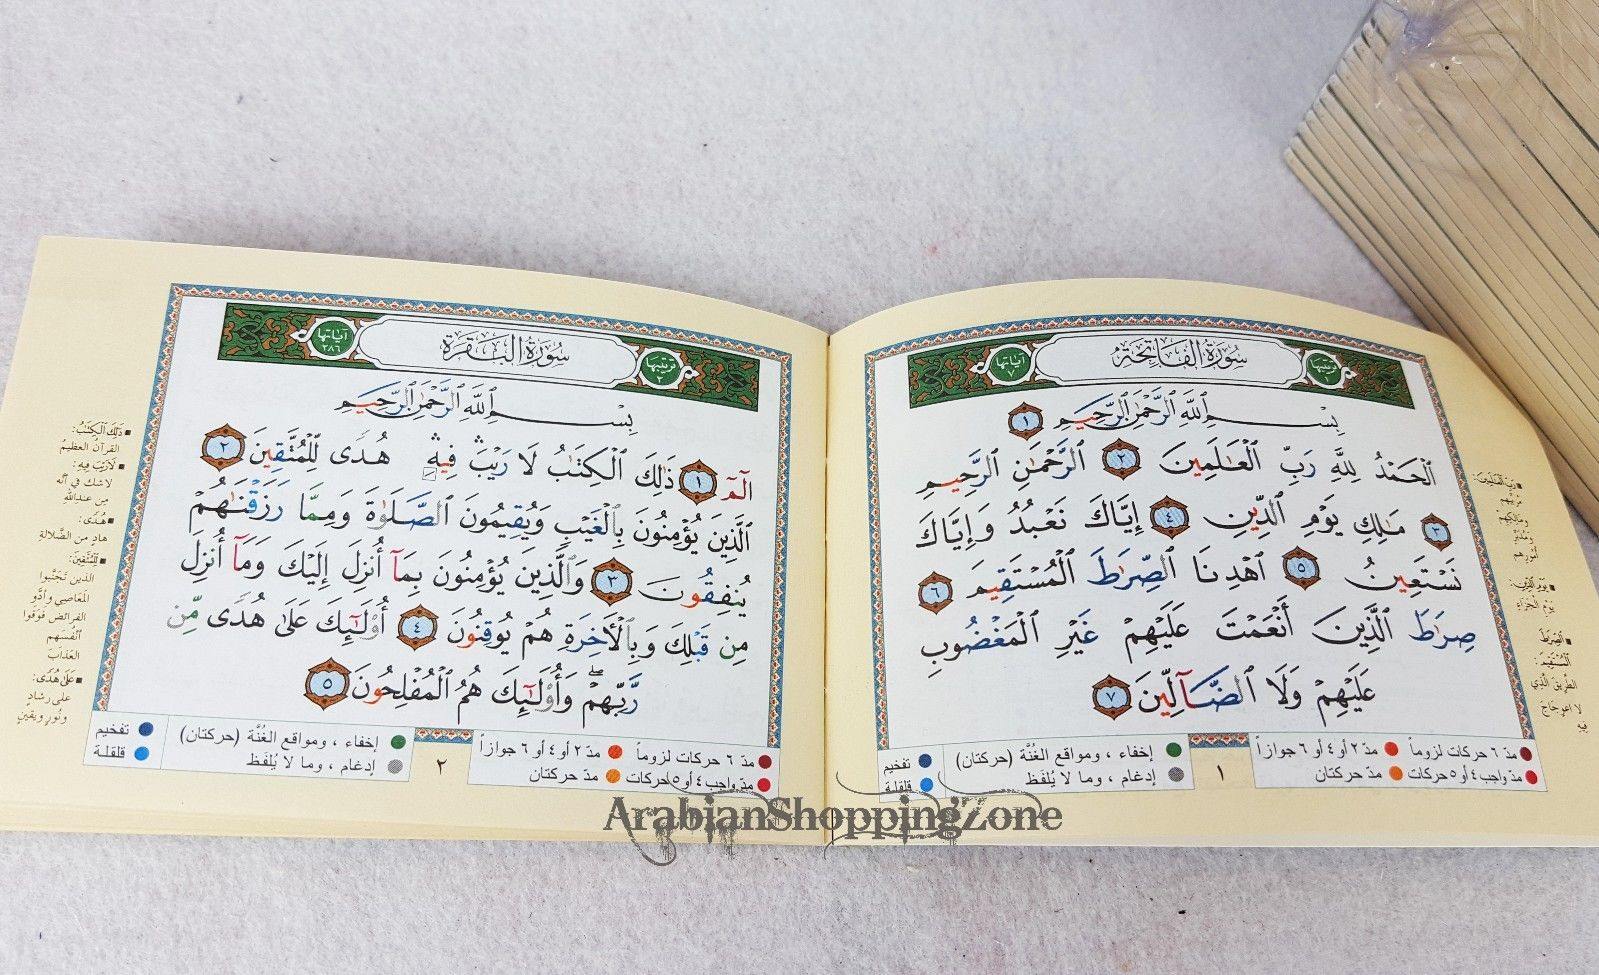 سُورَةُ الفَاتِحَة
ترتيبها ١
آياتها ٧
بِسْمِ ٱللَّهِ ٱلرَّحْمَٰنِ ٱلرَّحِيمِ ١
ٱلْحَمْدُ لِلَّهِ رَبِّ ٱلْعَٰلَمِينَ ٢ ٱلرَّحْمَٰنِ ٱلرَّحِيمِ
٣ مَٰلِكِ يَوْمِ ٱلدِّينِ ٤ إِيَّاكَ نَعْبُدُ وَإِيَّاكَ
نَسْتَعِينُ ٥ ٱهْدِنَا ٱلصِّرَٰطَ ٱلْمُسْتَقِيمَ ٦
صِرَٰطَ ٱلَّذِينَ أَنْعَمْتَ عَلَيْهِمْ غَيْرِ ٱلْمَغْضُوبِ
عَلَيْهِمْ وَلَا ٱلضَّآلِّينَ ٧
يَوْمِ الدِّينِ:
يَوْمِ الجَزَاءِ
الصِّرَاطَ
المُسْتَقِيمَ:
الطَّرِيقَ الَّذِي
لا اعوِجَاجَ
فِيهِ
مدّ ٦ حركات لزوماً
مدّ ٢ أو ٤ أو ٦ جوازاً
مدّ واجب ٤ أو ٥ حركات
مدّ حركتان
إخفاء ، ومواقع الغُنَّة (حركتان)
إدغام ، وما لا يُلفَظ
تفخيم
قلقلة
١
سُورَةُ البَقَرَة
ترتيبها ٢
آياتها ٢٨٦
بِسْمِ ٱللَّهِ ٱلرَّحْمَٰنِ ٱلرَّحِيمِ
الٓمٓ ١ ذَٰلِكَ ٱلْكِتَٰبُ لَا رَيْبَ ۛ فِيهِ ۛ هُدًى لِّلْمُتَّقِينَ ٢
ٱلَّذِينَ يُؤْمِنُونَ بِٱلْغَيْبِ وَيُقِيمُونَ ٱلصَّلَوٰةَ وَمِمَّا رَزَقْنَٰهُمْ
يُنفِقُونَ ٣ وَٱلَّذِينَ يُؤْمِنُونَ بِمَآ أُنزِلَ إِلَيْكَ وَمَآ أُنزِلَ
مِن قَبْلِكَ وَبِٱلْأَخِرَةِ هُمْ يُوقِنُونَ ٤ أُو۟لَٰٓئِكَ عَلَىٰ هُدًى مِّن
رَّبِّهِمْ ۖ وَأُو۟لَٰٓئِكَ هُمُ ٱلْمُفْلِحُونَ ٥
ذَلِكَ الكِتَبُ:
القرآن العظيمُ
لَا رَيْبَ فِيهِ:
لا شك في أنَّه
مِن عندِاللهِ
هُدًى:
هادٍ من الضَّلالةِ
لِلْمُتَّقِينَ:
الذين تَجَنَّبوا
المَعَاصِي وأدَّو
الفرائضَ فَوَقَوا
أنفُسَهم
العَذَابَ
عَلَى هُدًى:
على رشادٍ
ونُورٍ ويقينٍ
مدّ ٦ حركات لزوماً
مدّ ٢ أو ٤ أو ٦ جوازاً
مدّ واجب ٤ أو ٥ حركات
مدّ حركتان
إخفاء ، ومواقع الغُنَّة (حركتان)
إدغام ، وما لا يُلفَظ
تفخيم
قلقلة
٢
ArabianShoppingZone